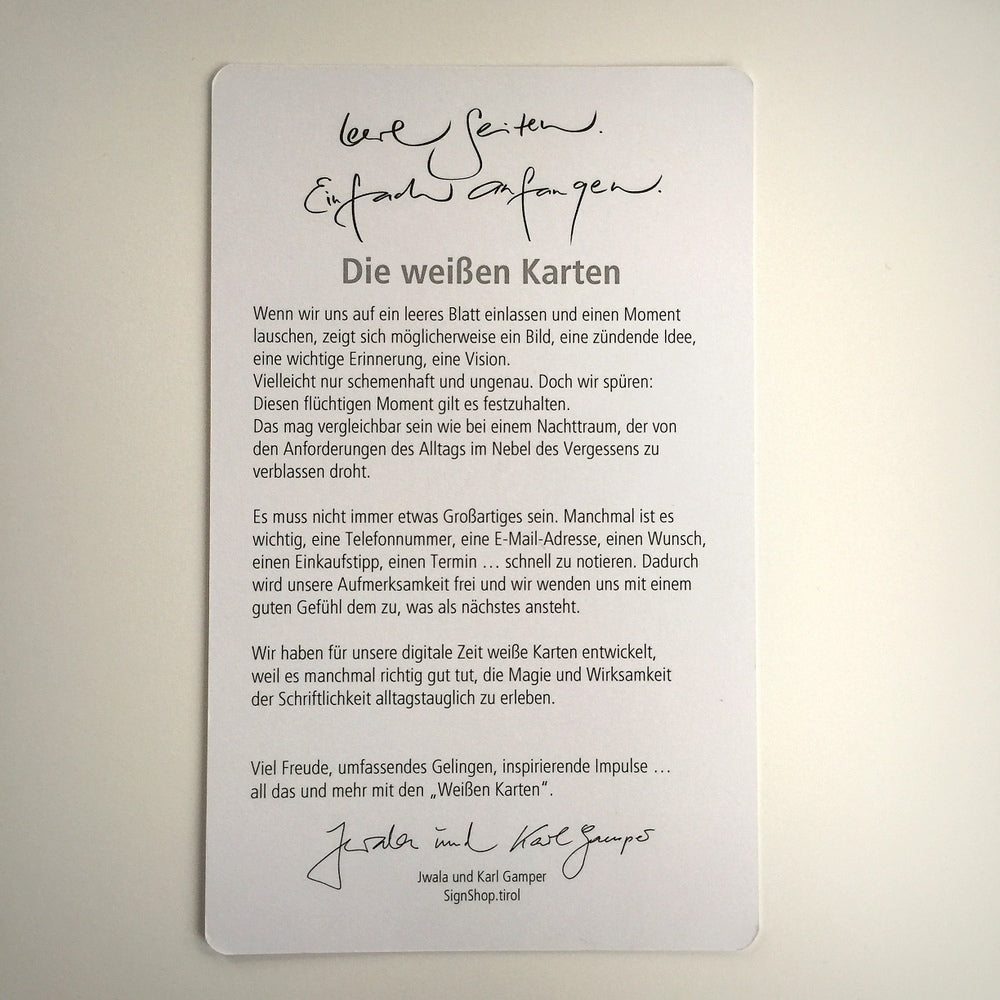 leere Seiten.
Einfach anfangen.
Die weißen Karten
Wenn wir uns auf ein leeres Blatt einlassen und einen Moment
lauschen, zeigt sich möglicherweise ein Bild, eine zündende Idee,
eine wichtige Erinnerung, eine Vision.
Vielleicht nur schemenhaft und ungenau. Doch wir spüren:
Diesen flüchtigen Moment gilt es festzuhalten.
Das mag vergleichbar sein wie bei einem Nachttraum, der von
den Anforderungen des Alltags im Nebel des Vergessens zu
verblassen droht.
Es muss nicht immer etwas Großartiges sein. Manchmal ist es
wichtig, eine Telefonnummer, eine E-Mail-Adresse, einen Wunsch,
einen Einkaufstipp, einen Termin … schnell zu notieren. Dadurch
wird unsere Aufmerksamkeit frei und wir wenden uns mit einem
guten Gefühl dem zu, was als nächstes ansteht.
Wir haben für unsere digitale Zeit weiße Karten entwickelt,
weil es manchmal richtig gut tut, die Magie und Wirksamkeit
der Schriftlichkeit alltagstauglich zu erleben.
Viel Freude, umfassendes Gelingen, inspirierende Impulse …
all das und mehr mit den „Weißen Karten“.
Jwala und Karl Gamper
Jwala und Karl Gamper
SignShop.tirol